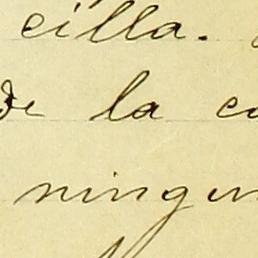 cilla.
de la co
ningun